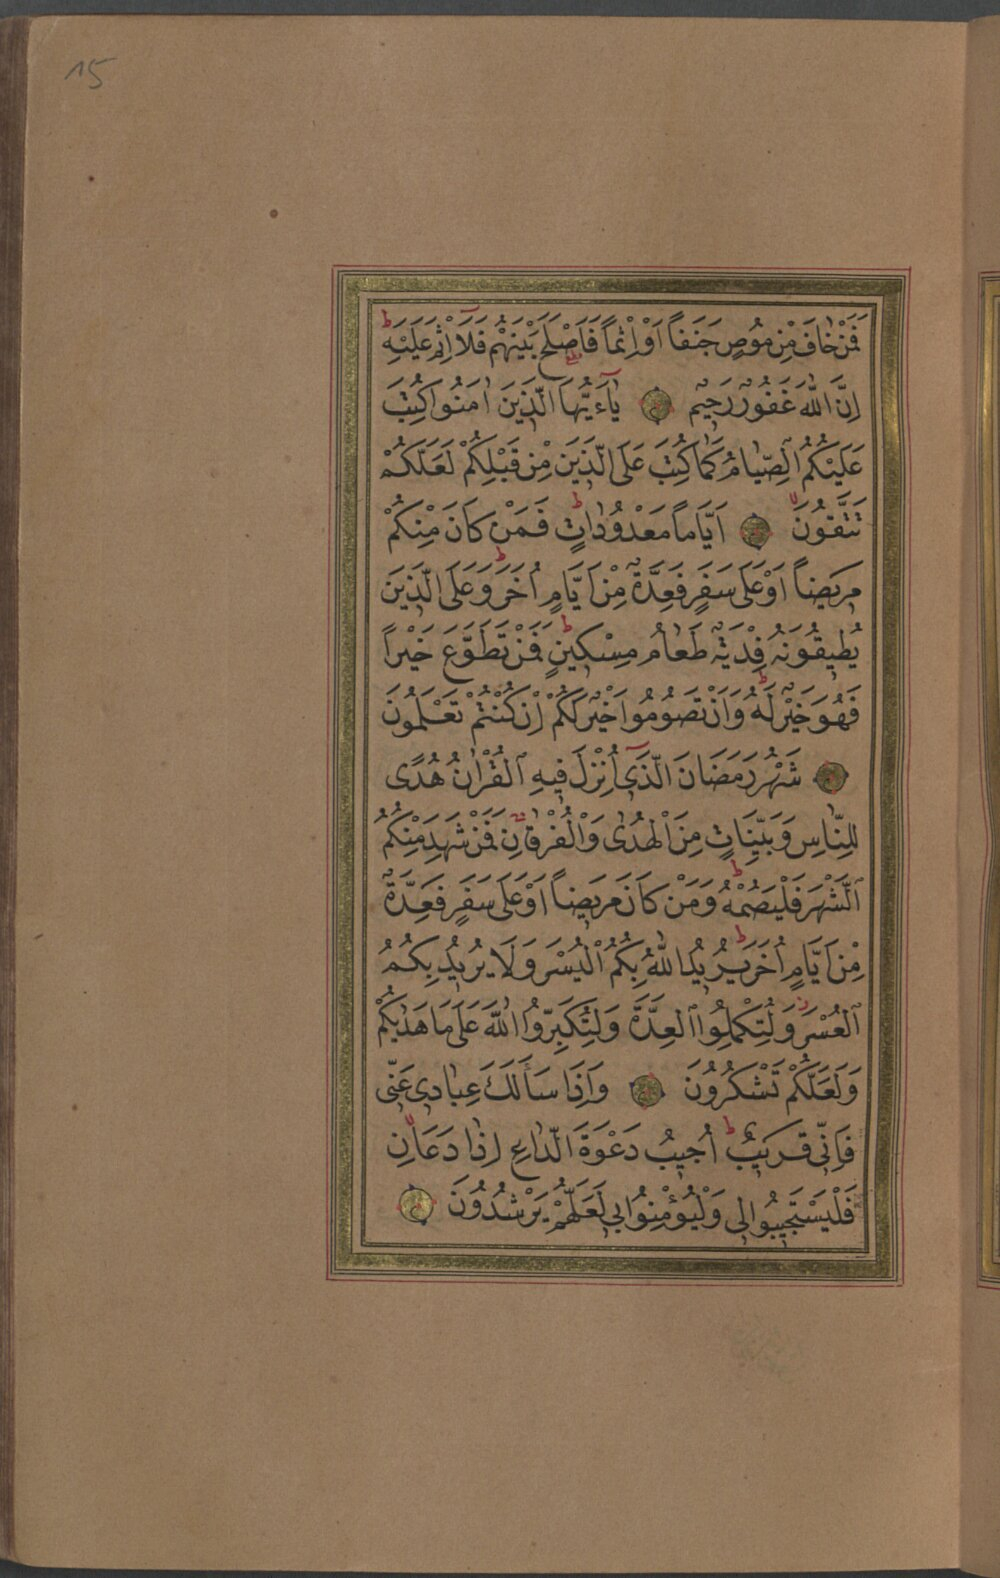 15
فَمَنْ خَافَ مِنْ مُوصٍ جَنَفاً اَوْ اِثْماً فَاَصْلَحَ بَيْنَهُمْ فَلَٓا اِثْمَ عَلَيْهِۜ
اِنَّ اللّٰهَ غَفُورٌ رَحِيمٌ يَٓاءَيُّهَا الَّذِينَ اٰمَنُوا كُتِبَ
عَلَيْكُمُ الصِّيَامُ كَمَا كُتِبَ عَلَى الَّذِينَ مِنْ قَبْلِكُمْ لَعَلَّكُمْ
تَتَّقُونَ اَيَّاماً مَعْدُودَاتٍ فَمَنْ كَانَ مِنْكُمْ
مَرِيضاً اَوْ عَلَى سَفَرٍ فَعِدَّةٌ مِنْ اَيَّامٍ اُخَرَ وَعَلَى الَّذِينَ
يُطِيقُونَهُ فِدْيَةٌ طَعَامُ مِسْكِينٍ فَمَنْ تَطَوَّعَ خَيْراً
فَهُوَ خَيْرٌ لَهُ وَاَنْ تَصُومُوا خَيْرٌ لَكُمْ اِنْ كُنْتُمْ تَعْلَمُونَ
شَهْرُ رَمَضَانَ الَّذِٓي اُنْزِلَ فِيهِ الْقُرْاٰنُ هُدًى
لِلنَّاسِ وَبَيِّنَاتٍ مِنَ الْهُدٰى وَالْفُرْقَانِ فَمَنْ شَهِدَ مِنْكُمُ
الشَّهْرَ فَلْيَصُمْهُ وَمَنْ كَانَ مَرِيضاً اَوْ عَلَى سَفَرٍ فَعِدَّةٌ
مِنْ اَيَّامٍ اُخَرَ يُرِيدُ اللّٰهُ بِكُمُ الْيُسْرَ وَلَا يُرِيدُ بِكُمُ
الْعُسْرَ وَلِتُكْمِلُوا الْعِدَّةَ وَلِتُكَبِّرُوا اللّٰهَ عَلَى مَا هَدٰيكُمْ
وَلَعَلَّكُمْ تَشْكُرُونَ وَاِذَا سَأَلَكَ عِبَادِي عَنِّي
فَاِنِّي قَرِيبٌ اُجِيبُ دَعْوَةَ الدَّاعِ اِذَا دَعَانِ
فَلْيَسْتَجِيبُوا لِي وَلْيُؤْمِنُوا بِي لَعَلَّهُمْ يَرْشُدُونَ